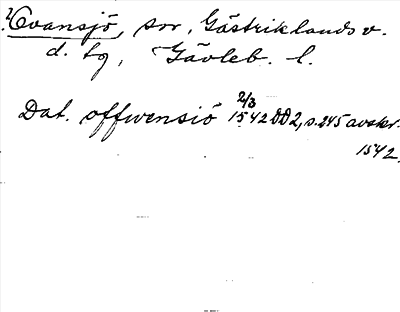 ? Ovansjö, snr, Gästriklands v.
d. tg, Gävleb. l.
Dat. offwensiö 2/3 1542 DD2, s. 245 avskr.
1542.